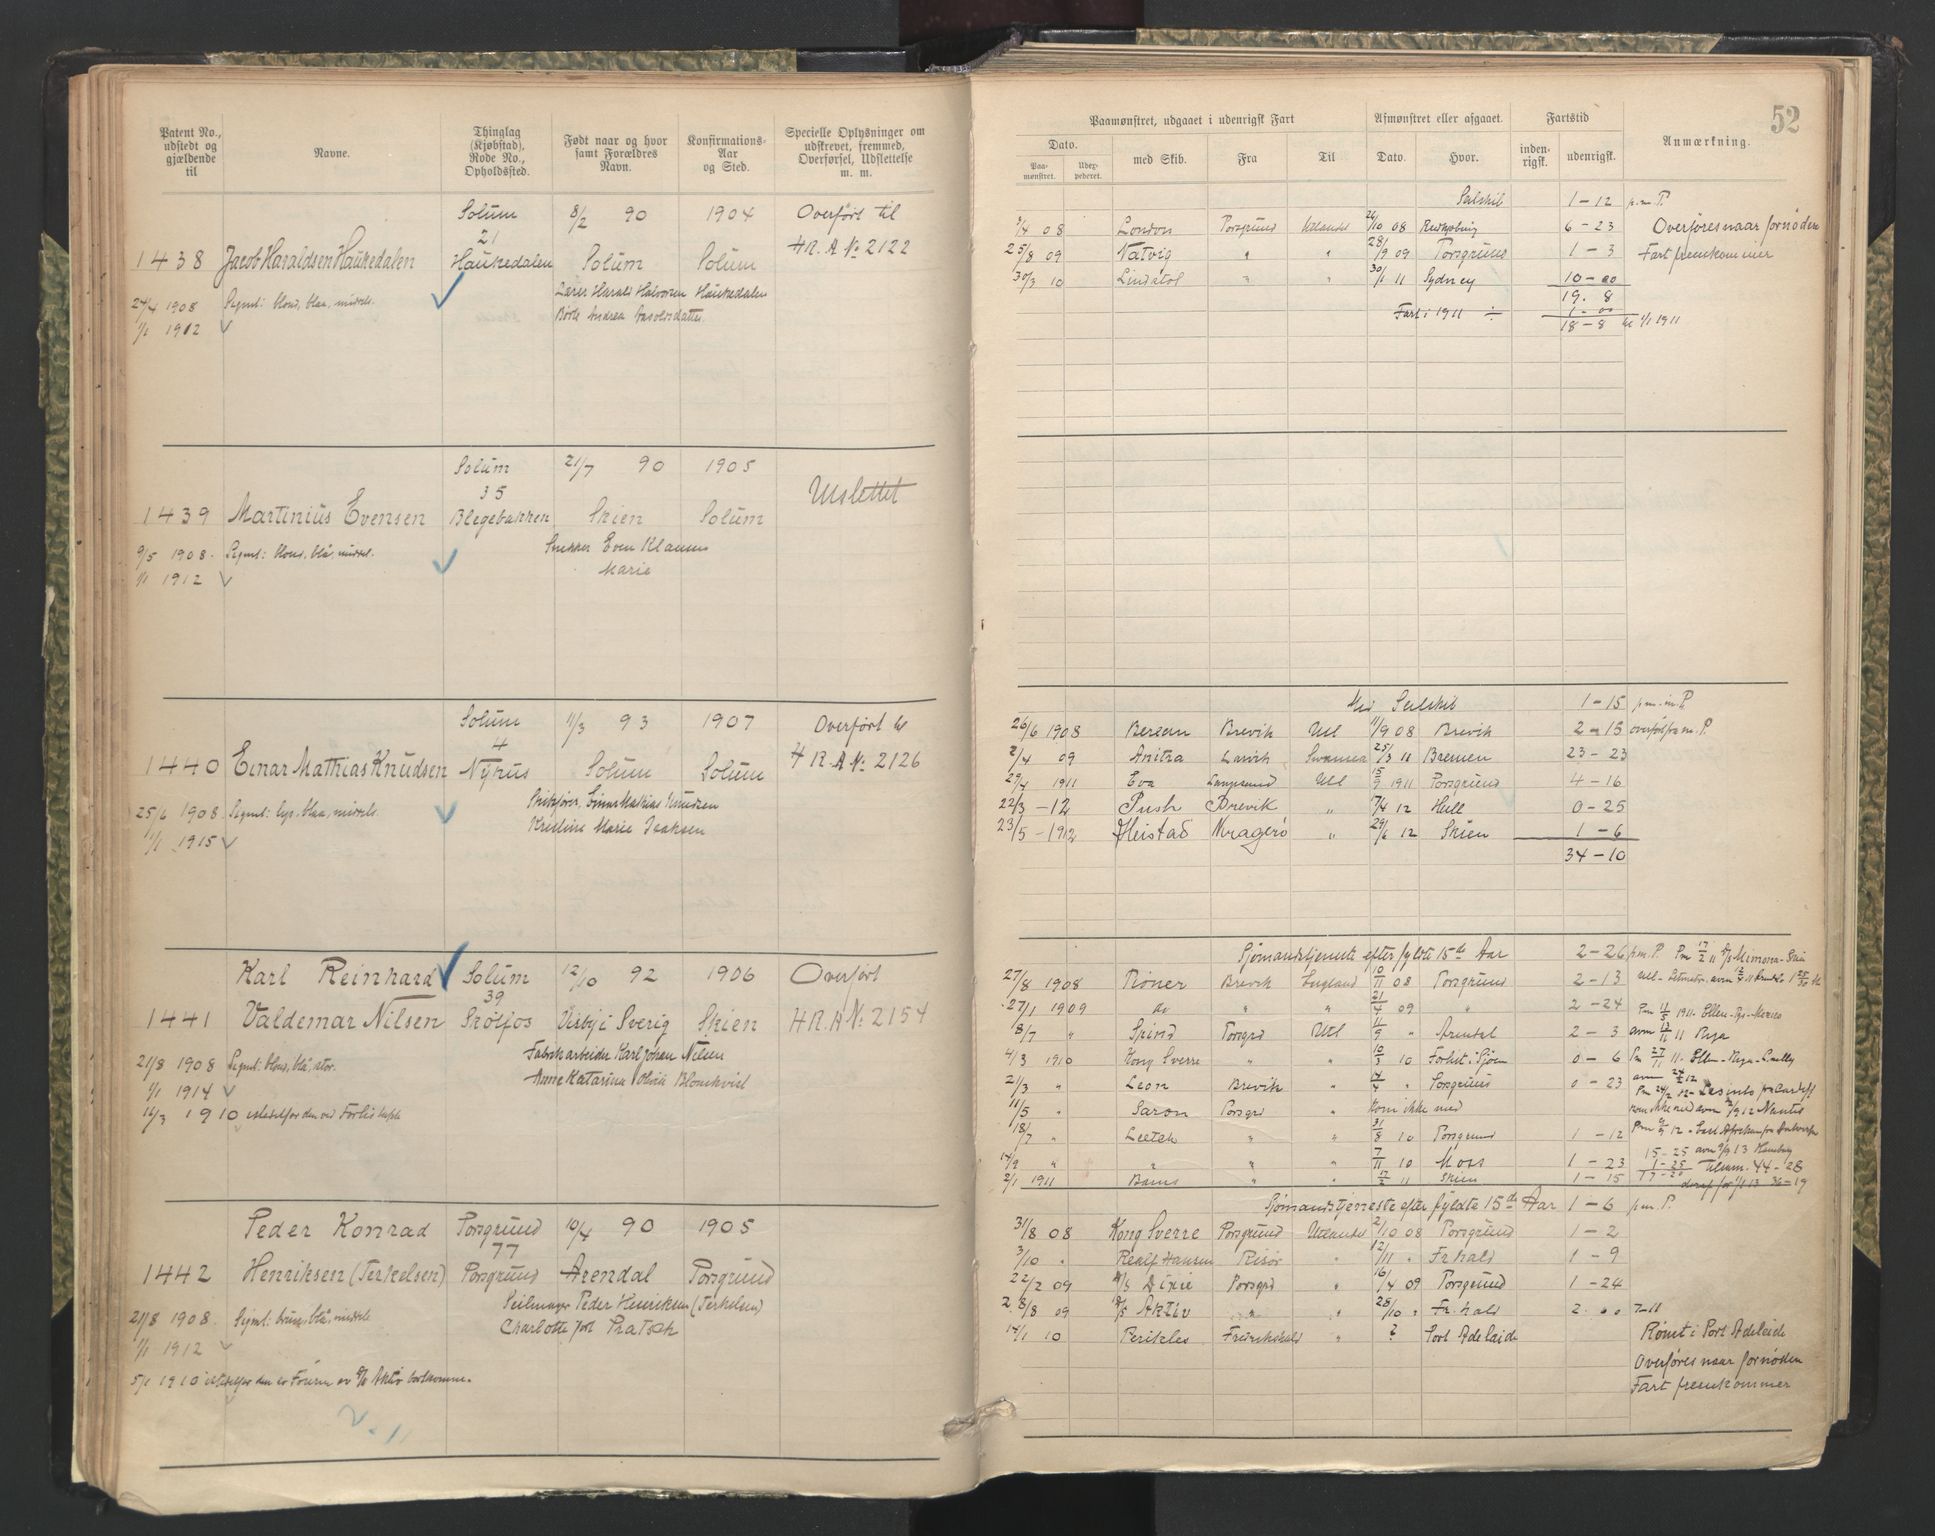 52
Patent No., udstedt og gjældende til
Navne.
Thinglag (Kjøbstad), Rode No., Opholdssted.
Født naar og hvor samt Forældres Navn.
Konfirmations-Aar og Sted.
Specielle Oplysninger om udskrevet, fremmed, Overførsel, Udslettelse m. m.
Paamønstret, udgaaet i udenrigsk Fart
Afmønstret eller afgaaet.
Fartstid
Anmærkning.
Dato.
Paa-mønstret.
Udex-pederet.
med Skib.
Fra
Til
Dato.
Hvor.
inden-rigsk.
udenrigsk.
Solum 8/2 90 1904 Overført til
21 H.R. A No 2122
1438 Jacob Haraldsen Haukedalen Haukedalen Solum Solum
Harald Halvorsen Haukedalen
24/4 1908 Signl: blond, blaa, middels.
Andrea
1/1 1912
Seilskib 1-12 p.m. P.
/4 08 London Porsgrund Utlandet 24/10 08 6-23 Overføres naar fornøden
25/8 09 Natvig " " 28/9 09 Porsgrund 1-3 Fart fremkommer
30/3 10 " " 30/1 11 Sydney 10-00
19. 8
Fart i 1911 ÷ 1-00
18-8 til 1/1 1911
Solum 21/7 90 1905 Udslettet
35
1439 Martinius Evensen Blegebakken Skien Solum
9/5 1908. Signl: blond, blå, middel. Snekker Even Klausen
1/1 1912 Marie
Solum 11/3 93 1907 Overført til
4 H.R. A No 2126
1440 Einar Mathias Knudsen Nyhus Solum Solum
25/6 1908 Signl: lys, blaa, middels. Skibsfører Einar Mathias Knudsen
1/1 1915 Kristine Marie Isaksen
Med Seilskib 1-15 p.m.m. P
26/6 1908 Brevik Utl 11/9 08 Brevik 2-15 overført fra m. P.
2/4 09 Anitra Larvik Swansea 25/3 11 Bremen 23-23
29/4 1911 Eva Langesund Utl 15/9 1911 Porsgrund 4-16
22/3-12 Push Brevik " 7/4 12 Hull 0-25
23/5-1912 Heistad Kragerø " 29/6 12 Skien 1-6
34-10
Karl Reinhard Solum 12/10 92 1906 Overført
39
1441 Valdemar Nilsen Skotfos Visby i Sverig Skien H.R. A No 2154
21/8 1908 Signl: blond, blå, stor. Fabrikarbeider Karl Johan Nilsen
1/1 1914 Anne Katarina Olivia Blomkvist
16/3 1910 istedetfor den ved Forlis tabte
Sjømandstjeneste efter fyldte 15de Aar 2-26 p.m. P.
27/8 1908 Brevik England 10/11 08 Porsgrund 2-13
27/1 1909 do " " 21/4 09 " 2-24
8/7 " Spind Porsgrd Utl 11/9 " Arendal 2-3
4/3 1910 Kong Sverre " " 10/3 10 Forlist i Sjøen 0-6
21/3 " Leon Brevik " 14/4 " Porsgrund 0-23
11/5 " Saron Porsgrd " Kom ikke med
18/7 " " " 31/8 10 Porsgrund 1-12
14/9 " " " " 7/11 10 Moss 1-23
2/1 1911 " " 17/2 11 Skien 1-15
Tilsam. 44-28
Peder Konrad Porsgrund 10/4 90 1905
77
1442 Henriksen (Terkelsen) Porsgrund Arendal Porsgrund
Seilmager Peder Henriksen (Terkelsen)
21/8 1908. Signl: brun, blå, middels Charlotte født Pratsch
1/1 1912
5/1 1910 istedetfor den er Føreren av S/S Aktiv bortkomne.
2. 11
Sjømandstjeneste efter fyldte 15de Aar 1-6 p.m. P.
31/8 08 Kong Sverre Porsgrund Utlandet 2/10 08 Porsgrund 1-2
3/10 " Realf Hansen Risør " 12/11 " Fr.hald 1-9
22/2 09 S/S Dixie Porsgrd " 16/4 09 Porsgrund 1-24
28/8 09 S/S Aktiv " " 28/10 " Fr.hald 2.00 7-11
14/1 10 Perikles Fredrikshald " ? Port Adelaide Rømt i Port Adelaide
Overføres naar fornøden
Fart fremkommer